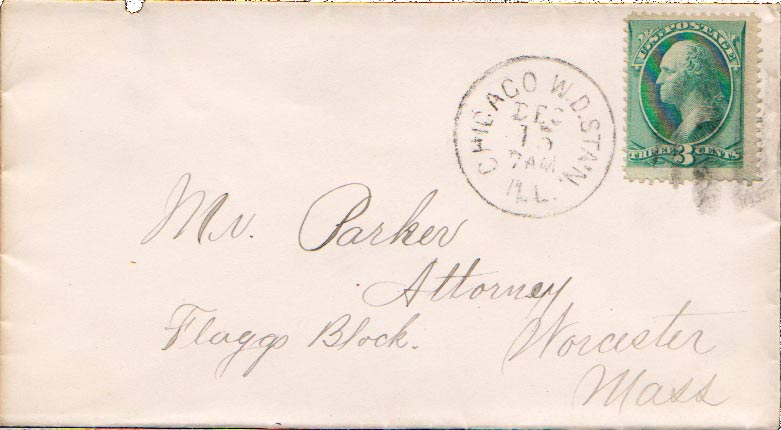 U.S. POSTAGE
THREE 3 CENTS
CHICAGO W.D. STA'N.
DEC
15
7 AM
ILL.
Mr. Parker
Attorney
Flaggs Block. Worcester
Mass